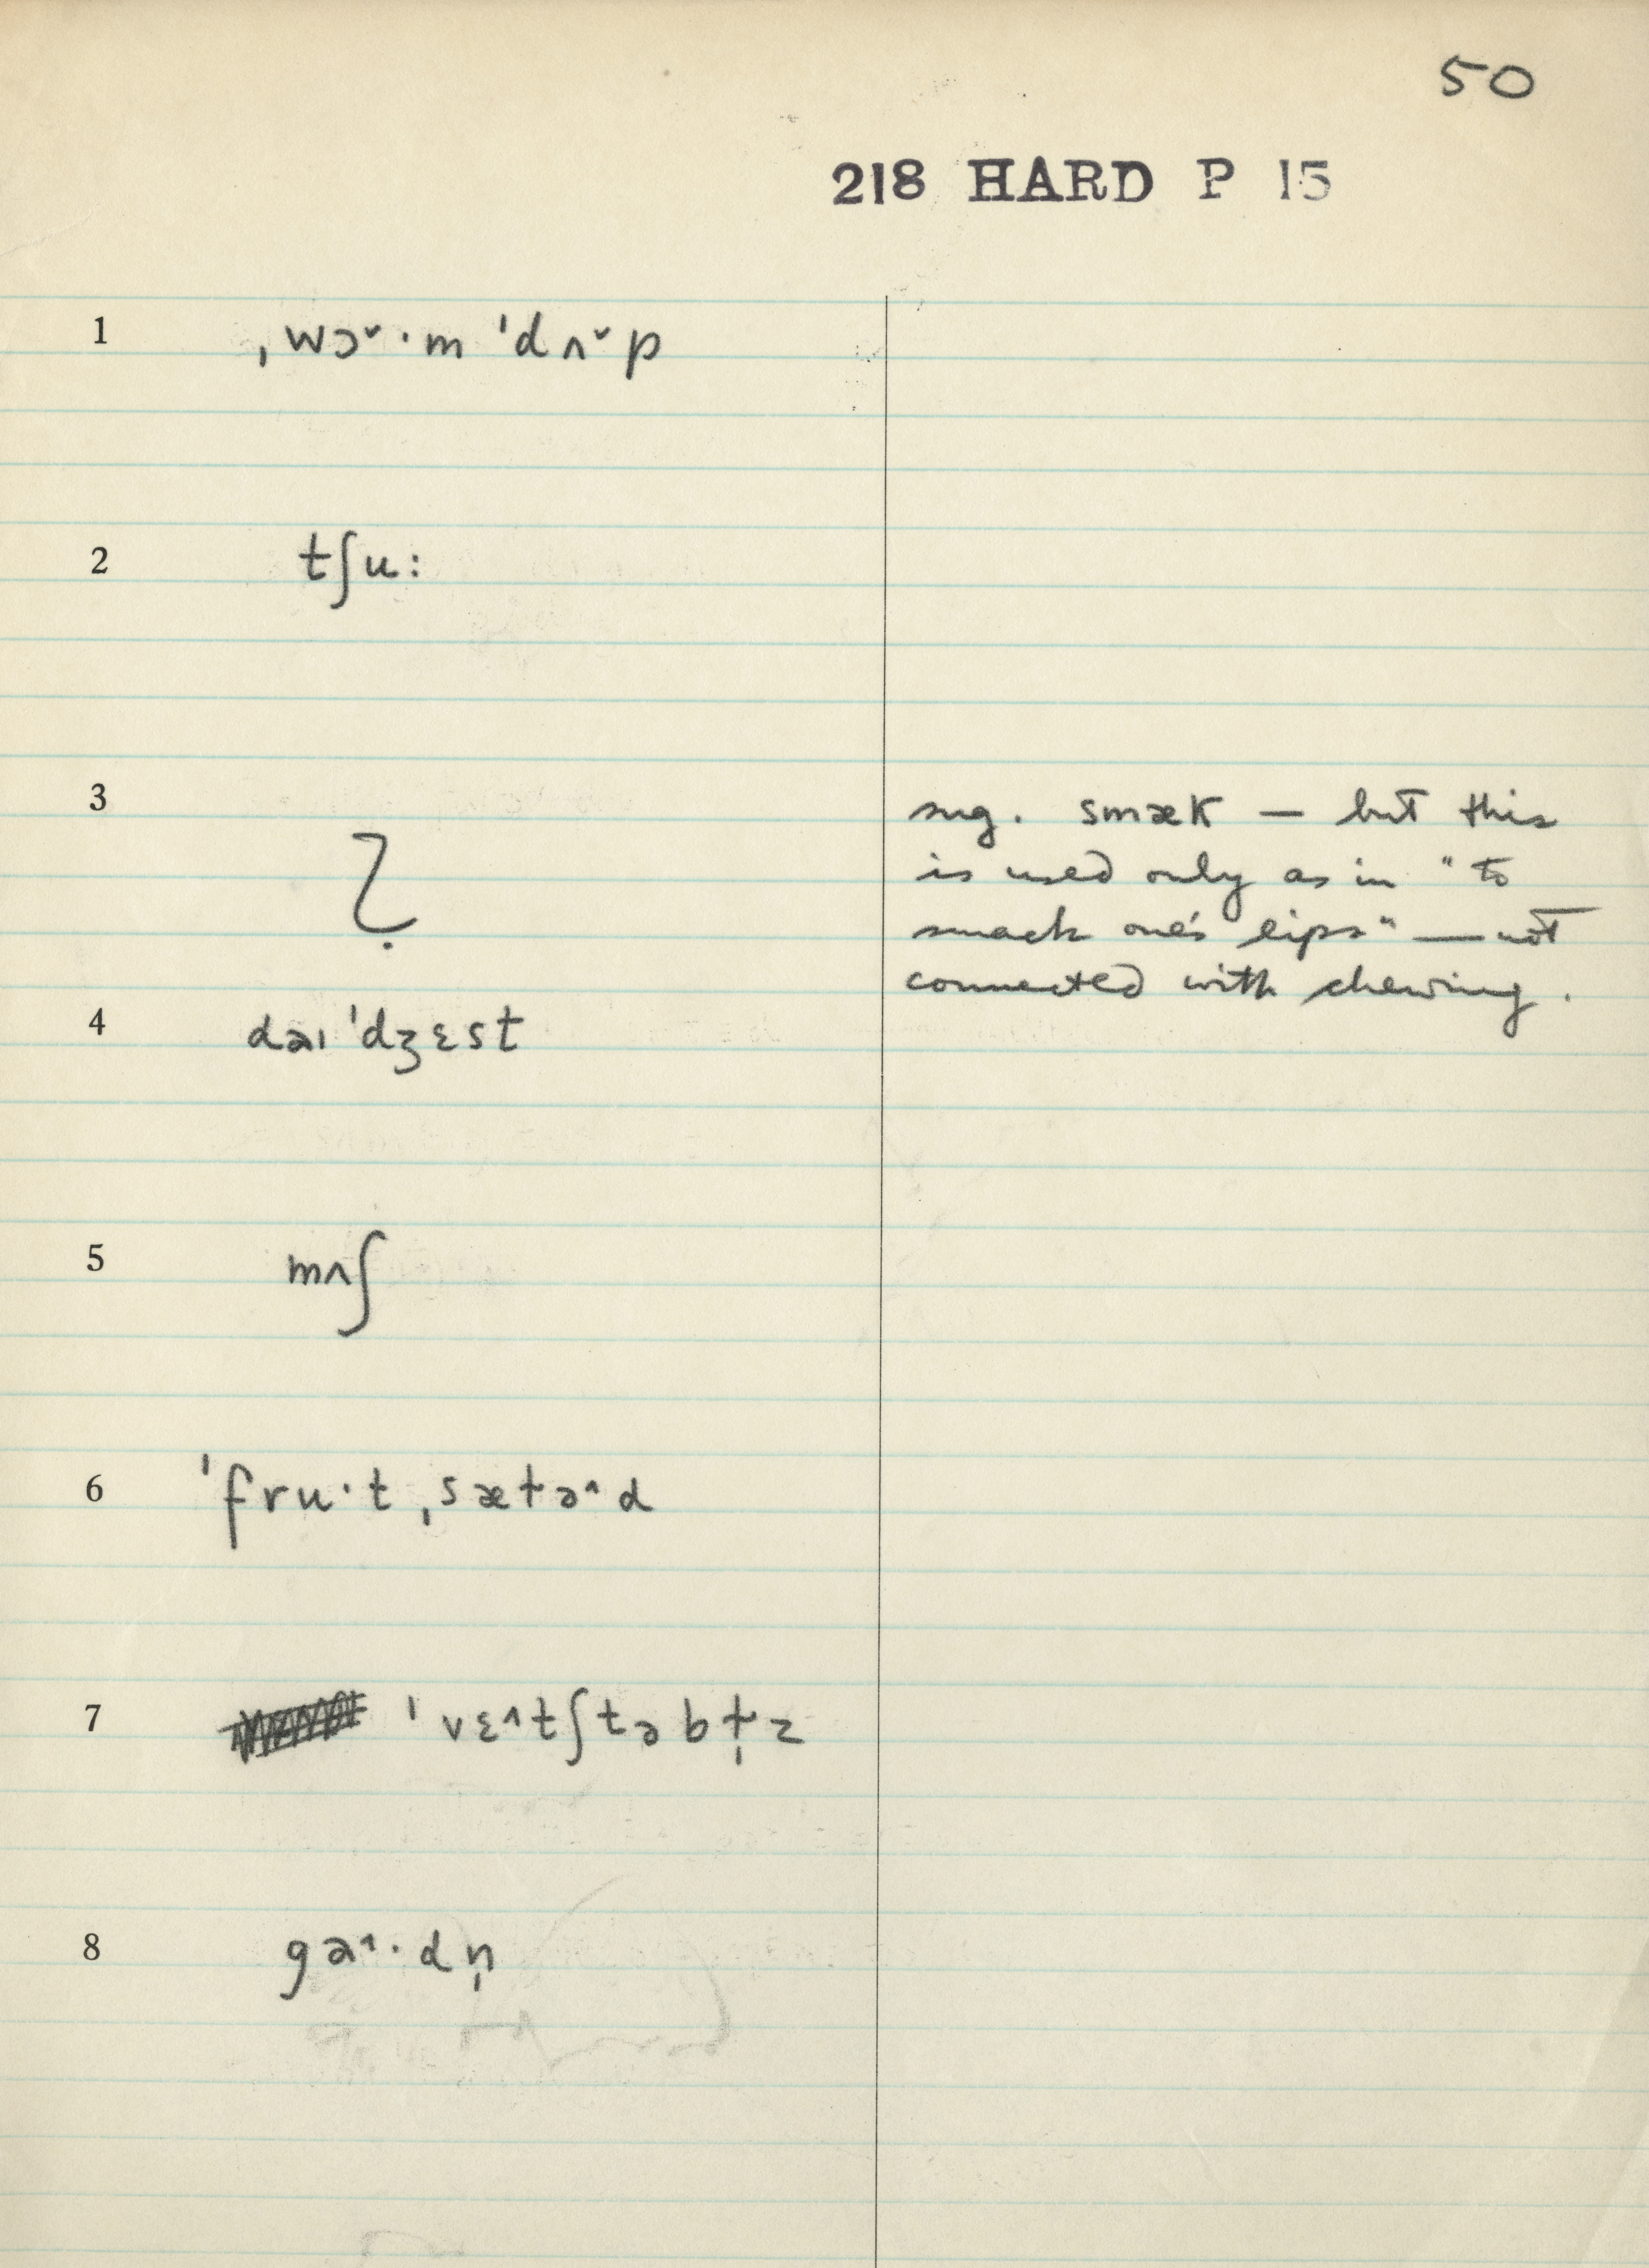 50
218 HARD P 15
1 ˌwɔ˅·m ˈdʌ˅p
2 tʃu:
3 ?
sug. smæk — but this
is used only as in "to
smack one's lips" — not
connected with chewing.
4 dəɪˈdʒɛst
5 mʌʃ
6 ˈfru·t ˌsætə˄d
7 ˈvɛ˄tʃtəbɫ̩z
8 ga˄·dn̩